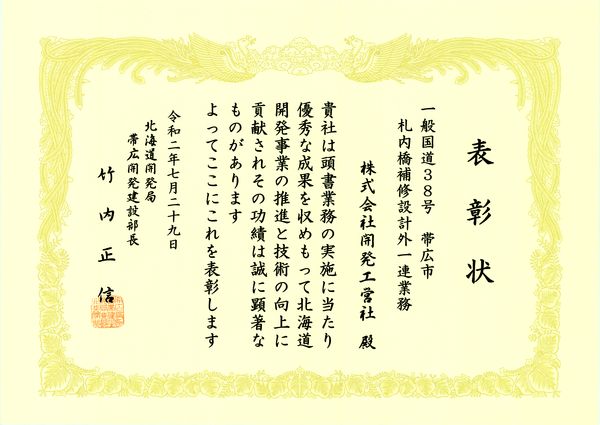 表彰状
一般国道38号　帯広市
札内橋補修設計外一連業務
株式会社開発工営社　殿
貴社は頭書業務の実施に当たり
優秀な成果を収めもって北海道
開発事業の推進と技術の向上に
貢献されその功績は誠に顕著な
ものがあります
よってここにこれを表彰します
令和二年七月二十九日
北海道開発局
帯広開発建設部長
竹内正信